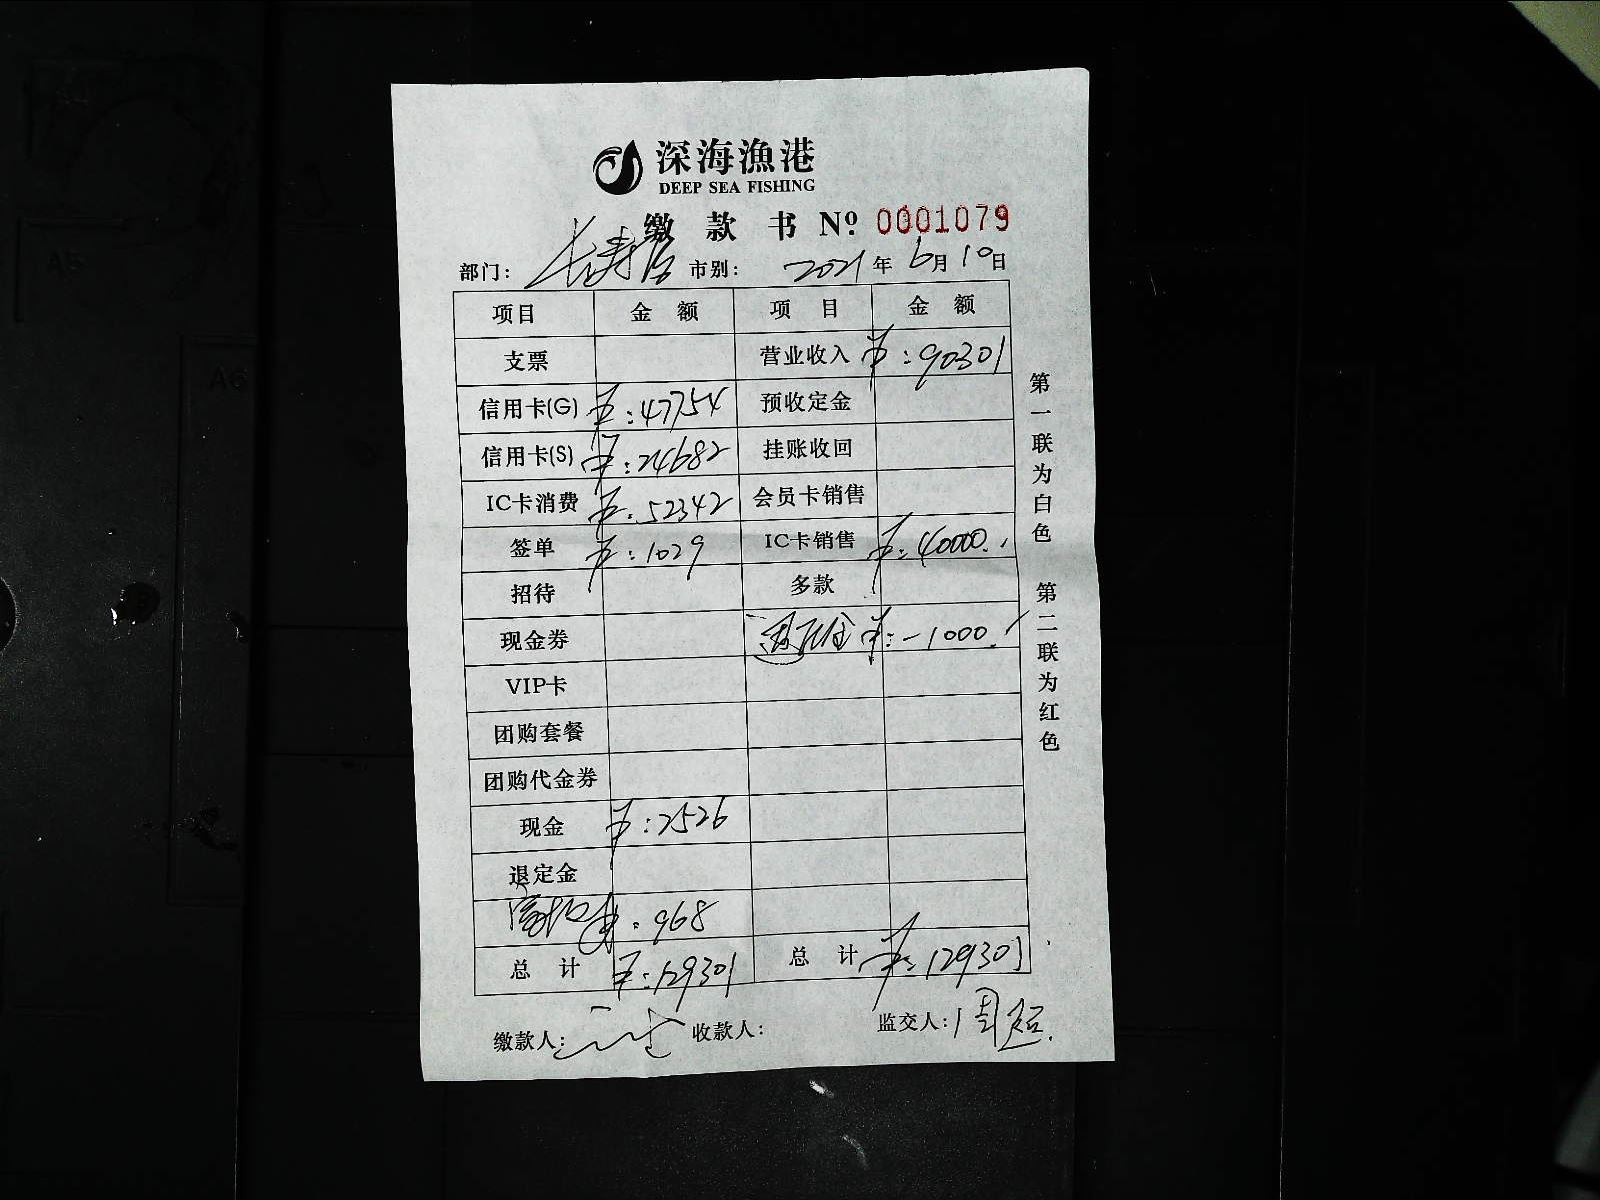 深海漁港
DEEP SEA FISHING
缴 款 书 Nº 0001079
部门: 长寿店 市别: 2021年6月10日
项目 金 额 项 目 金 额
支票 营业收入 ¥:90301
信用卡(G) ¥:47754 预收定金
信用卡(S) ¥:24682 挂账收回
IC卡消费 ¥:52342 会员卡销售
签单 ¥:1029 IC卡销售 ¥:40000.
招待 多款
现金券 ¥:-1000.
VIP卡
团购套餐
团购代金券
现金 ¥:2526
退定金
¥:968
总 计 ¥:129301 总 计 ¥:129301
缴款人: 收款人: 监交人: 周
第一联为白色 第二联为红色
A5
A6